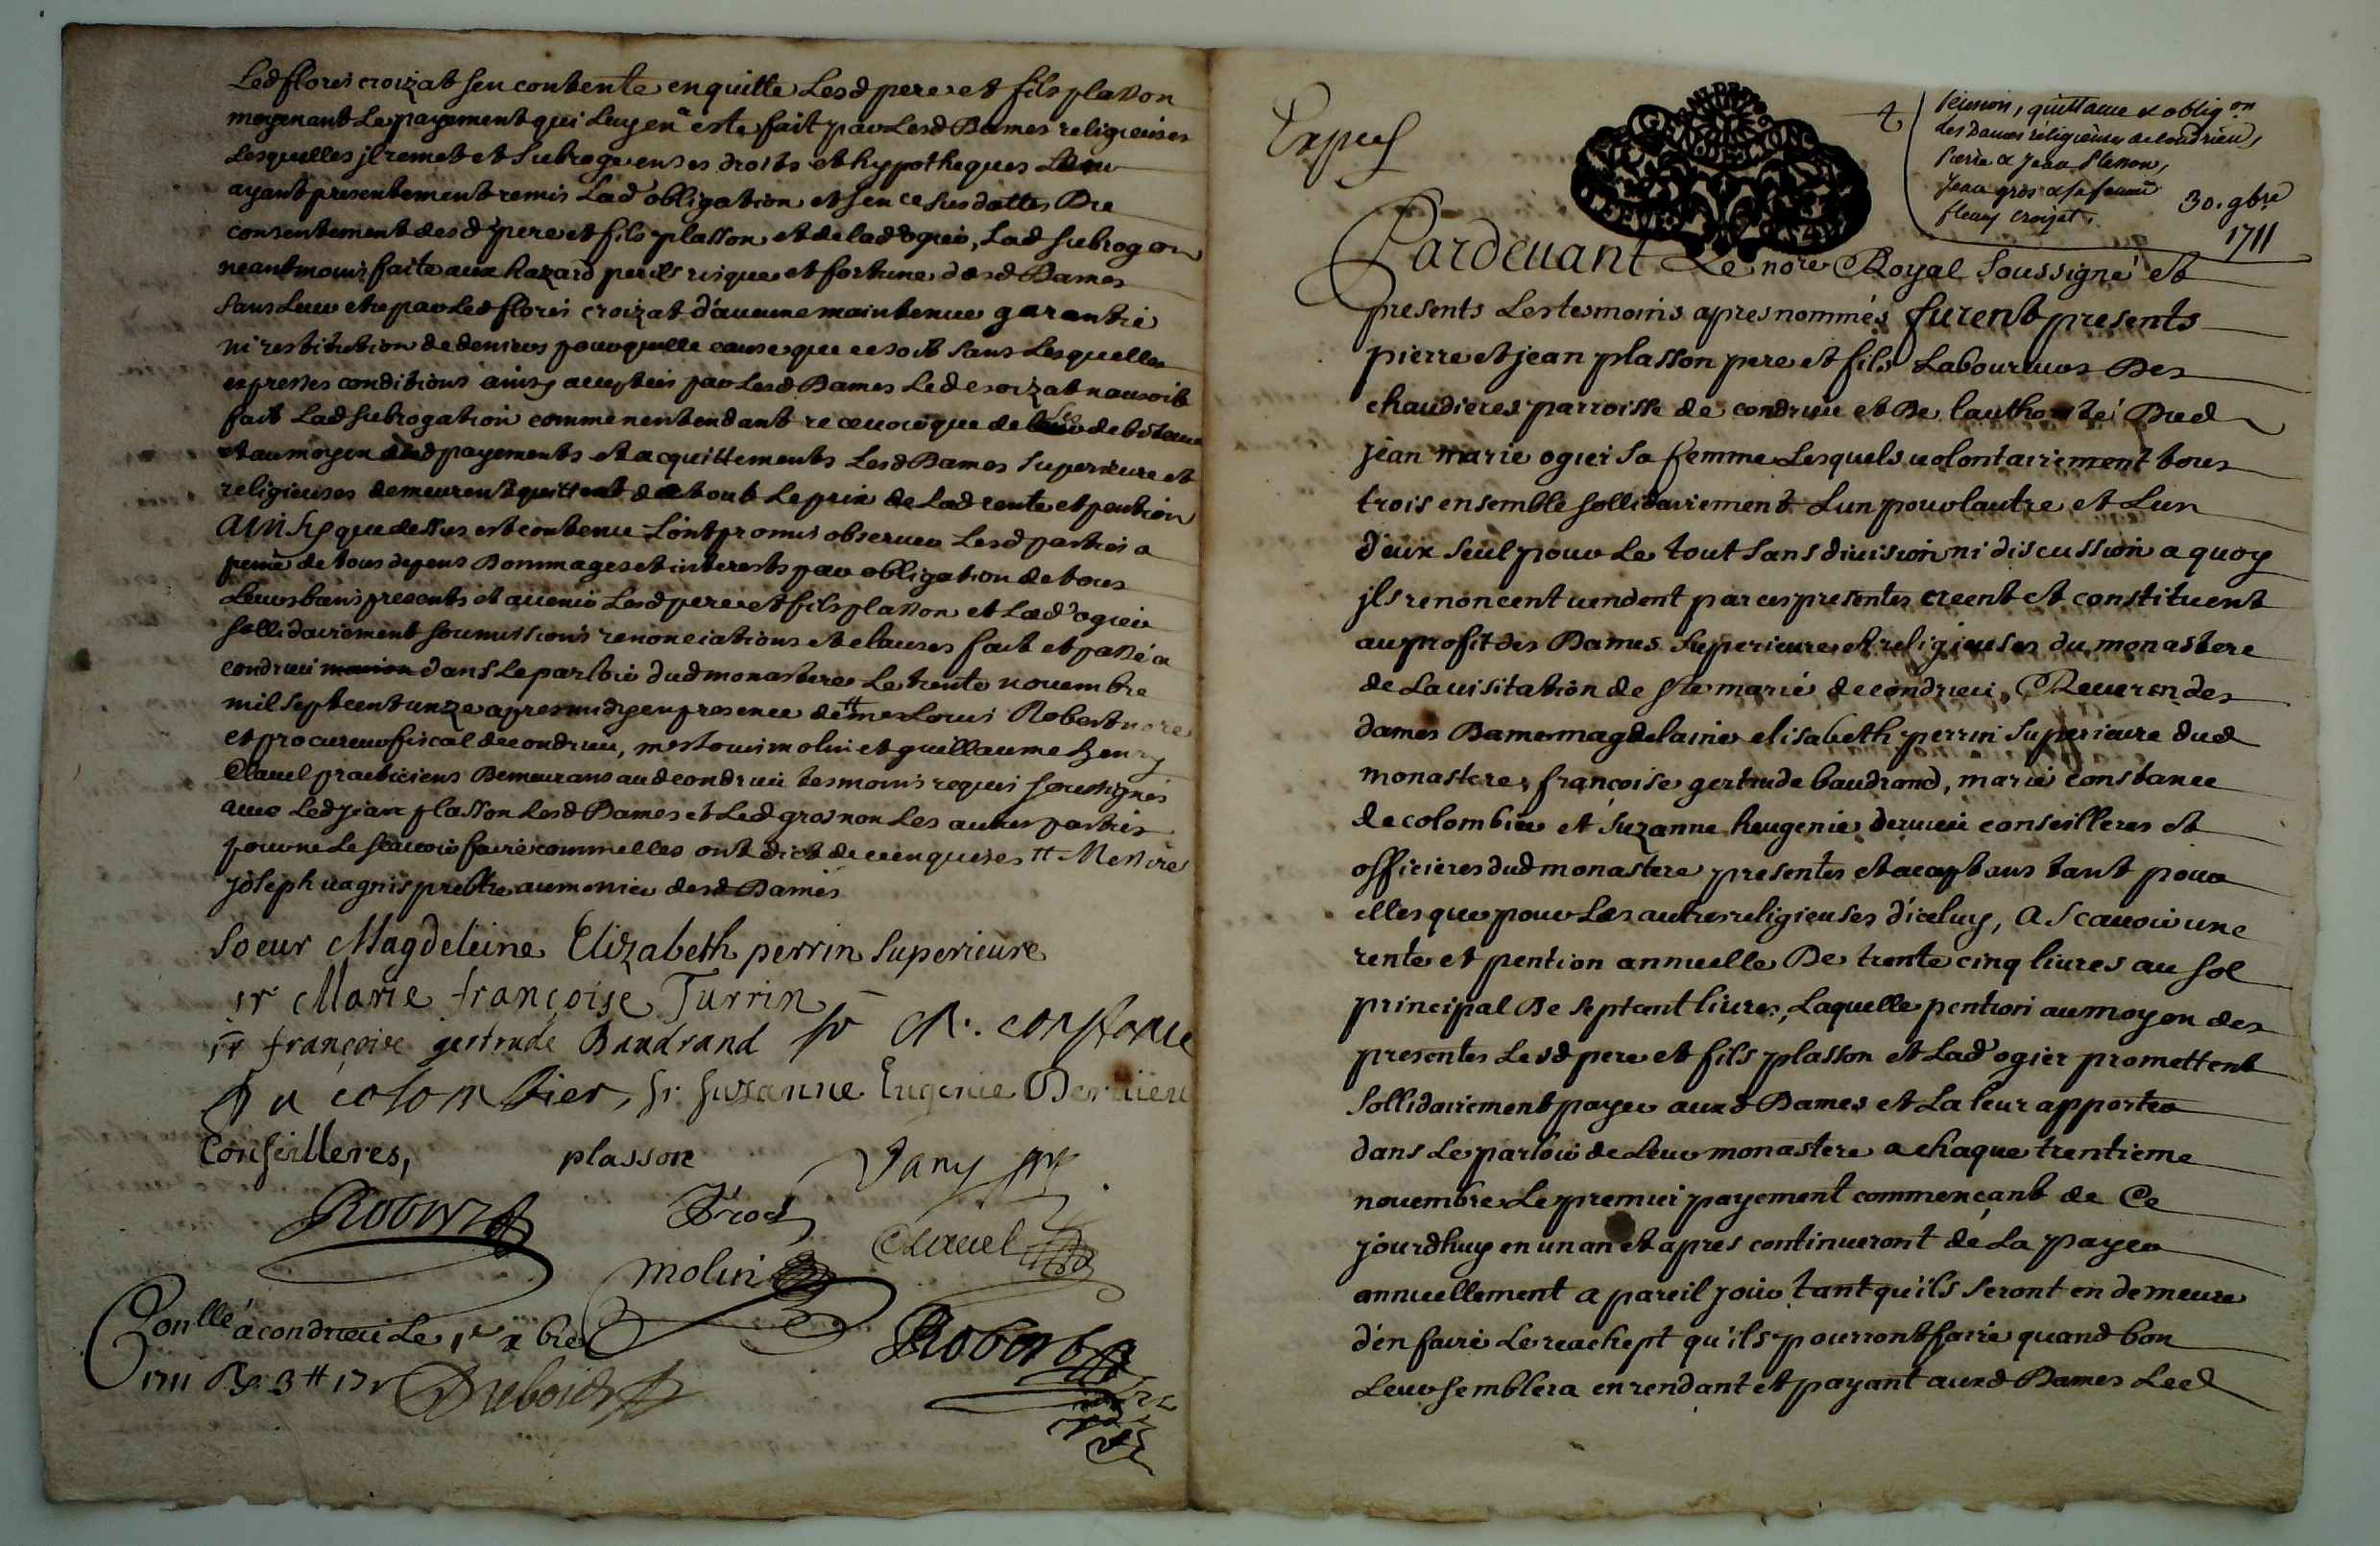 Led flores croizat sen contente en quitte Lesd pere et fils plasson
moyenant Le payement qui Luy en a este fait par Lesd Dames religieuses
Lesquelles jl remet et subroge en ses droits et hypotheques Leur
ayant presentement remis Lad obligation et sence susdattes De
consentement desd pere et fils plasson et de lad ogier, Lad subrogaon
neantmoins faite aux hazard perils risque et fortune desd Dames
sans Leur etre par Led flores croizat d'aucune maintenue garantie
ni restitution de deniers pour quelle cause que ce soit sans Lesquelles
expresses conditions ainsy acceptées par Lesd Dames Led croizat nauroit
fait Lad subrogation comme nentendant recevoir que de debiteurs
et au moyen payements et acquittements Lesd Dames superieure et
religieuses demeurent quittent de tout Le prix de Lad rente et pention
AINSY que dessus est contenu L'ont promis observer Lesd parties a
peine de tous depens Dommages et interests par obligation de tous
Leurs biens presents et avenir Lesd pere et fils plasson et Lad ogier
sollidairement soumissions renonciations et clauses fait et passé a
condrieu dans Le parloir dud monastere Le trente novembre
mil sept cent unze apres midy en presence de # me Louis Robert nore
et procureur fiscal de condrieu, mes Louis molin et guillaume henry
Clavel praticiens Demeurans aud condrieu tesmoins requis soussignés
avec Led jean plasson Lesd Dames et Led gros non Les autres parties
pour ne Le scavoir faire comm'elles ont dict de ce enquises # Messire
joseph vagnis prebtre aumonier desd Dames
Soeur Magdeleine Elizabeth perrin superieure
sr Marie françoise Turrin
sr françoise gertrude Baudrand sr M. constance
du colombier, sr suzanne Eugenie Dervieu
Conseilleres, plasson
Robert Gros
molin Clavel
Conllé a condrieu Le 1er xbre Robert
1711 R. 3 # Dubois
Expué
pension, quittance & obligon
des Dames religieuses de Condrieu,
Pierre & Jean Plasson,
Jean gros & sa femme
fleury croizat. 30. 9bre
1711
Pardevant Le nore Royal soussigné et
presents Les tesmoins apres nommés furent presents
pierre et jean plasson pere et fils Laboureurs Des
chaudieres parroisse de condrieu et De lauthorité Dud
jean marie ogier sa femme Lesquels volontairement tous
trois ensemble sollidairement Lun pour lautre et Lun
d'eux seul pour Le tout sans division ni discussion a quoy
jls renoncent vendent par ces presentes creent et constituent
au profit des Dames superieure et religieuses du monastere
de La visitation de Ste marie de condrieu, Reverendes
dames Dame magdelaine elisabeth perrin superieure dud
monastere, françoise gertrude baudrand, marie constance
de colombier et suzanne heugenie dervieu conseilleres et
officieres dud monastere presentes et aceptans tant pour
elles que pour Les autres religieuses d'iceluy, a scavoir une
rente et pention annuelle De trente cinq livres au sol
principal De sept cent livres, Laquelle pention au moyen des
presentes Lesd pere et fils plasson et Lad ogier promettent
sollidairement payer auxd Dames et La leur apporter
dans Le parloir de Leur monastere a chaque trentieme
novembre Le premier payement commençant de Ce
jourdhuy en un an et apres continueront de La payer
annuellement a pareil jour tant qu'ils seront en demeure
d'en faire Le reachept qu'ils pourront faire quand bon
Leur semblera en rendant et payant auxd Dames Led